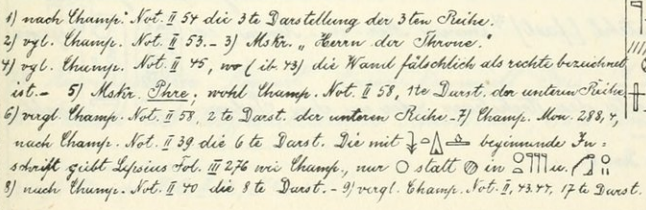 1) nach Champ. Not. II 54 die 3te Darstellung der 3ten Reihe.
2) vgl. Champ. Not. II 53. – 3) Mskr. „Herrn der Throne."
4) vgl. Champ. Not. II 45, wo (ib. 43) die Wand fälschlich als rechte bezeichnet
ist. – 5) Mskr. Phre; wohl Champ. Not. II 58, 1te Darst. der unteren Reihe
6) vergl. Champ. Not. II 58, 2te Darst. der unteren Reihe – 7) Champ. Mon. 288, 4,
nach Champ. Not. II 39 die 6te Darst. Die mit beginnende In=
schrift giebt Lepsius Fol. III 276 wie Champ., nur statt in u.
8) nach Champ. Not. II 40 die 8te Darst. – 9) vergl. Champ. Not. II, 43.44, 17te Darst.